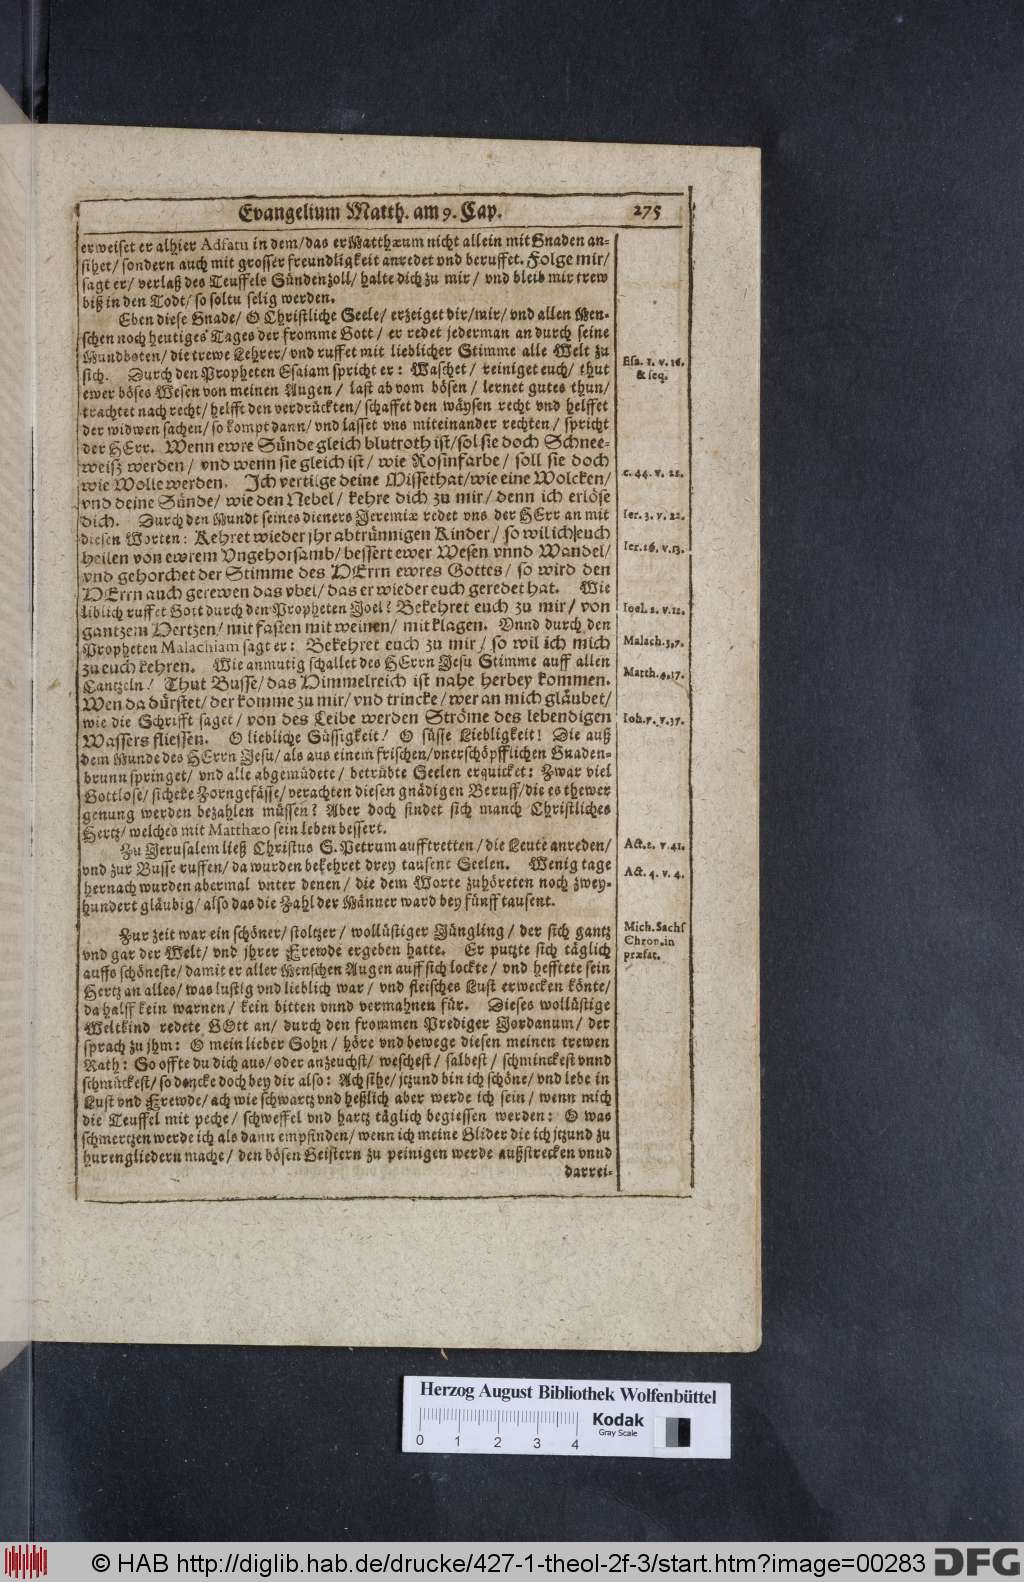 Evangelium Matth. am 9. Cap. 275
erweiset er alhier Adfatu in dem/ das er Matthæum nicht allein mit Gnaden an-
sihet/ sondern auch mit grosser freundligkeit anredet vnd beruffet. Folge mir/
sagt er/ verlaß des Teuffels Sündenzoll/ halte dich zu mir/ vnd bleib mir trew
biß in den Todt/ so soltu selig werden.
Eben diese Gnade/ O Christliche Seele/ erzeiget dir/ mir/ vnd allen Men-
schen noch heutiges Tages der fromme Gott/ er redet jederman an durch seine
Mundboten/ die trewe Lehrer/ vnd ruffet mit lieblicher Stimme alle Welt zu
sich. Durch den Propheten Esaiam spricht er: Waschet/ reiniget euch/ thut
ewer böses Wesen von meinen Augen/ last ab vom bösen/ lernet gutes thun/
trachtet nach recht/ helfft den verdrückten/ schaffet den wäysen recht vnd helffet
der widwen sachen/ so kompt dann/ vnd lasset vns miteinander rechten/ spricht
der HErr. Wenn ewre Sünde gleich blutroth ist/ sol sie doch Schnee-
weiß werden/ vnd wenn sie gleich ist/ wie Rosinfarbe/ soll sie doch
wie Wolle werden. Ich vertilge deine Missethat/ wie eine Wolcken/
vnd deine Sünde/ wie den Nebel/ kehre dich zu mir/ denn ich erlöse
dich. Durch den Mundt seines dieners Jeremiæ redet vns der HErr an mit
diesen Worten: Kehret wieder jhr abtrünnigen Kinder/ so wil ich euch
heilen von ewrem Vngehorsamb/ bessert ewer Wesen vnnd Wandel/
vnd gehorchet der Stimme des HErrn ewres Gottes/ so wird den
HErrn auch gerewen das vbel/ das er wieder euch geredet hat. Wie
liblich ruffet Gott durch den Propheten Joel? Bekehret euch zu mir/ von
gantzem Hertzen/ mit fasten mit weinen/ mit klagen. Vnnd durch den
Propheten Malachiam sagt er: Bekehret euch zu mir/ so wil ich mich
zu euch kehren. Wie anmutig schallet des HErrn Jesu Stimme auff allen
Cantzeln! Thut Busse/ das Himmelreich ist nahe herbey kommen.
Wen da dürstet/ der komme zu mir/ vnd trincke/ wer an mich gläubet/
wie die Schrifft saget/ von des Leibe werden Ströme des lebendigen
Wassers fliessen. O liebliche Süssigkeit! O süsse Liebligkeit! Die auß
dem Munde des HErrn Jesu/ als aus einem frischen/ vnerschöpfflichen Gnaden-
brunn springet/ vnd alle abgemüdete/ betrübte Seelen erquicket: Zwar viel
Gottlose/ sichere Zorngefässe/ verachten diesen gnädigen Beruff/ die es thewer
genung werden bezahlen müssen? Aber doch findet sich manch Christliches
Hertz/ welches mit Matthæo sein leben bessert.
Zu Jerusalem ließ Christus S. Petrum aufftretten/ die Leute anreden/
vnd zur Busse ruffen/ da wurden bekehret drey tausent Seelen. Wenig tage
hernach wurden abermal vnter denen/ die dem Worte zuhöreten noch zwey-
hundert gläubig/ also das die Zahl der Männer ward bey fünff tausent.
Zur zeit war ein schöner/ stoltzer/ wollüstiger Jüngling/ der sich gantz
vnd gar der Welt/ vnd jhrer Frewde ergeben hatte. Er putzte sich täglich
auffs schöneste/ damit er aller Menschen Augen auff sich lockte/ vnd hefftete sein
Hertz an alles/ was lustig vnd lieblich war/ vnd fleisches Lust erwecken könte/
da halff kein warnen/ kein bitten vnnd vermahnen für. Dieses wollüstige
Weltkind redete GOtt an/ durch den frommen Prediger Jordanum/ der
sprach zu jhm: O mein lieber Sohn/ höre vnd bewege diesen meinen trewen
Rath: So offte du dich aus/ oder anzeuchst/ weschest/ salbest/ schminckest vnnd
schmückest/ so dencke doch bey dir also: Ach sihe/ jtzund bin ich schöne/ vnd lebe in
Lust vnd Frewde/ ach wie schwartz vnd heßlich aber werde ich sein/ wenn mich
die Teuffel mit peche/ schweffel vnd hartz täglich begiessen werden: O was
schmertzen werde ich als dann empfinden/ wenn ich meine Glider die ich jtzund zu
hurengliedern mache/ den bösen Geistern zu peinigen werde außstrecken vnnd
darrei-
Esa. 1. v. 16.
& seq.
c. 44. v. 22.
Ier. 3. v. 22.
Ier. 26. v. 13.
Ioel. 2. v. 12.
Malach. 3, 7.
Matth. 4, 17.
Ioh. 7. v. 37.
Act. 2. v. 41.
Act. 4. v. 4.
Mich. Sachs
Chron. in
præfat.
Herzog August Bibliothek Wolfenbüttel
Kodak
Gray Scale
0 1 2 3 4
© HAB http://diglib.hab.de/drucke/427-1-theol-2f-3/start.htm?image=00283
DFG